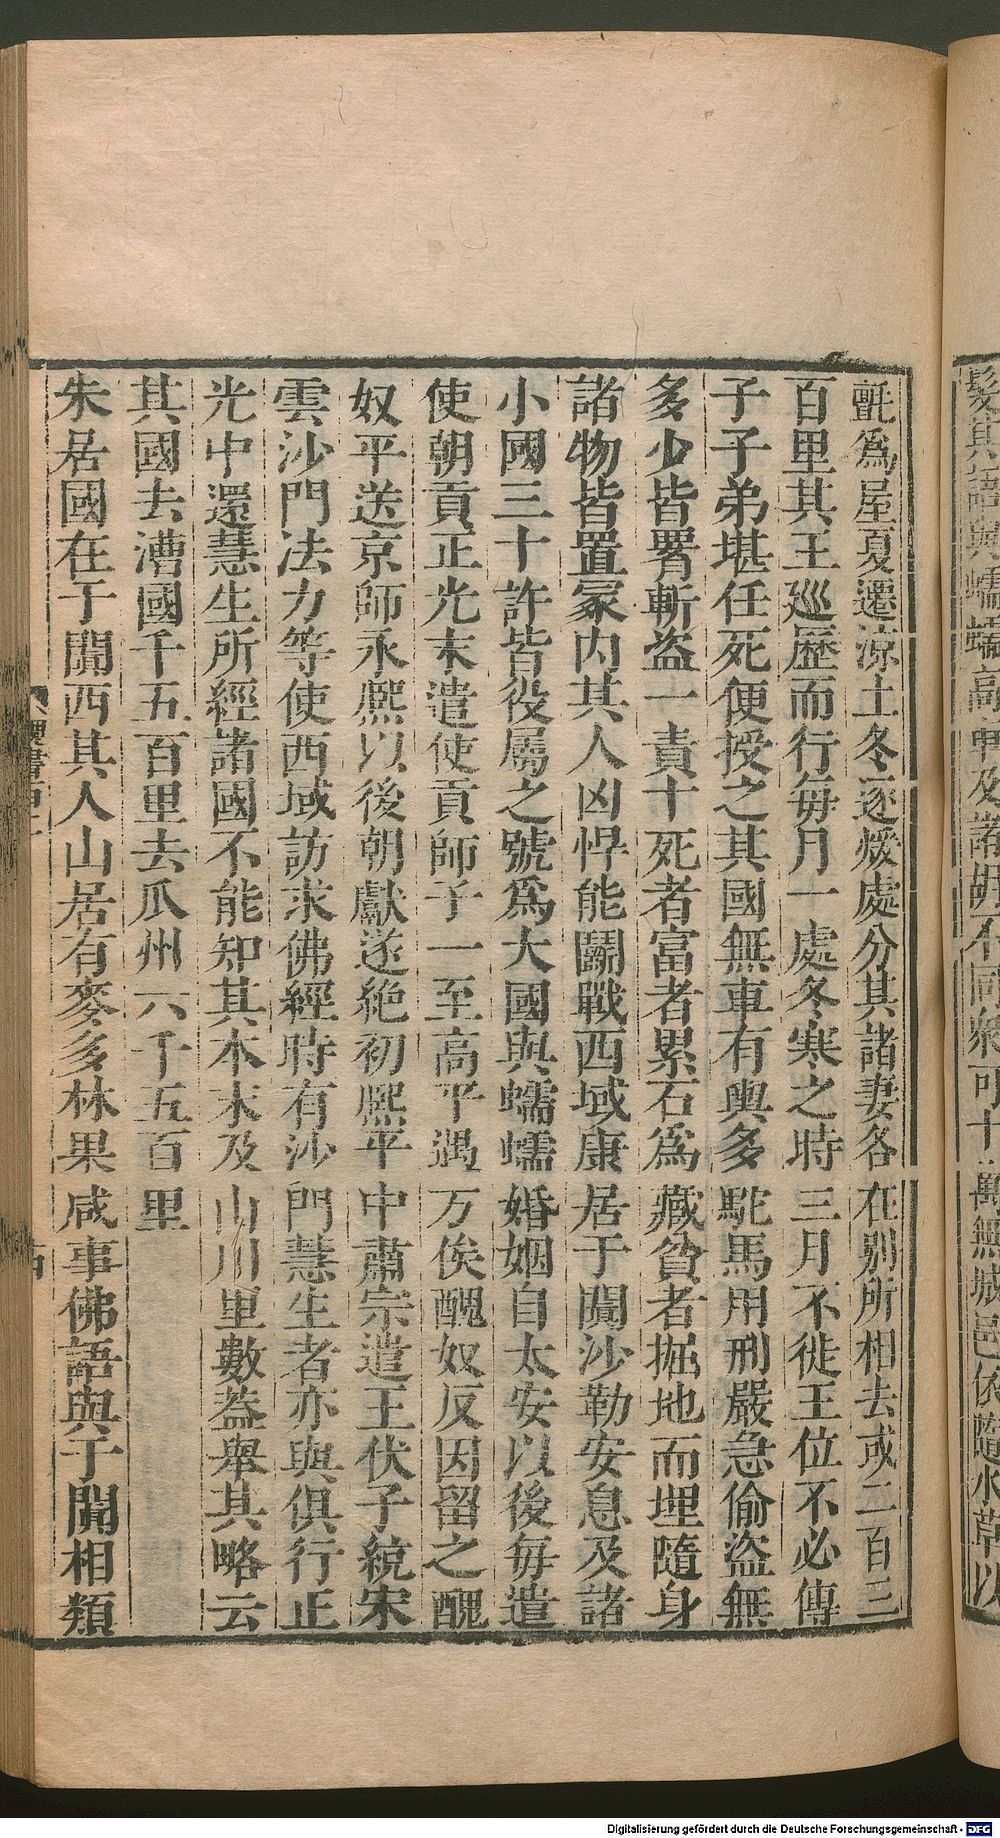 髮其語與蠕蠕高車及諸胡不同衆可十萬無城邑依隨水草以
氈爲屋夏遷涼土冬逐煖處分其諸妻各在别所相去或二百三
百里其王廵歷而行每月一處冬寒之時三月不徙王位不必傳
子子弟堪任死便授之其國無車有輿多駝馬用刑嚴急偷盜無
多少皆腰斬盜一責十死者富者累石爲藏貧者掘地而埋隨身
諸物皆置冢内其人凶悍能鬭戰西域康居于闐沙勒安息及諸
小國三十許皆役屬之號爲大國與蠕蠕婚姻自太安以後每遣
使朝貢正光末遣使貢師子一至高平遇万俟醜奴反因留之醜
奴平送京師永熈以後朝獻遂絶初熈平中肅宗遣王伏子統宋
雲沙門法力等使西域訪求佛經時有沙門慧生者亦與俱行正
光中還慧生所經諸國不能知其本末及山川里數葢舉其略云
其國去漕國千五百里去瓜州六千五百里
朱居國在于闐西其人山居有麥多林果咸事佛語與于闐相類
Digitalisierung gefördert durch die Deutsche Forschungsgemeinschaft - DFG